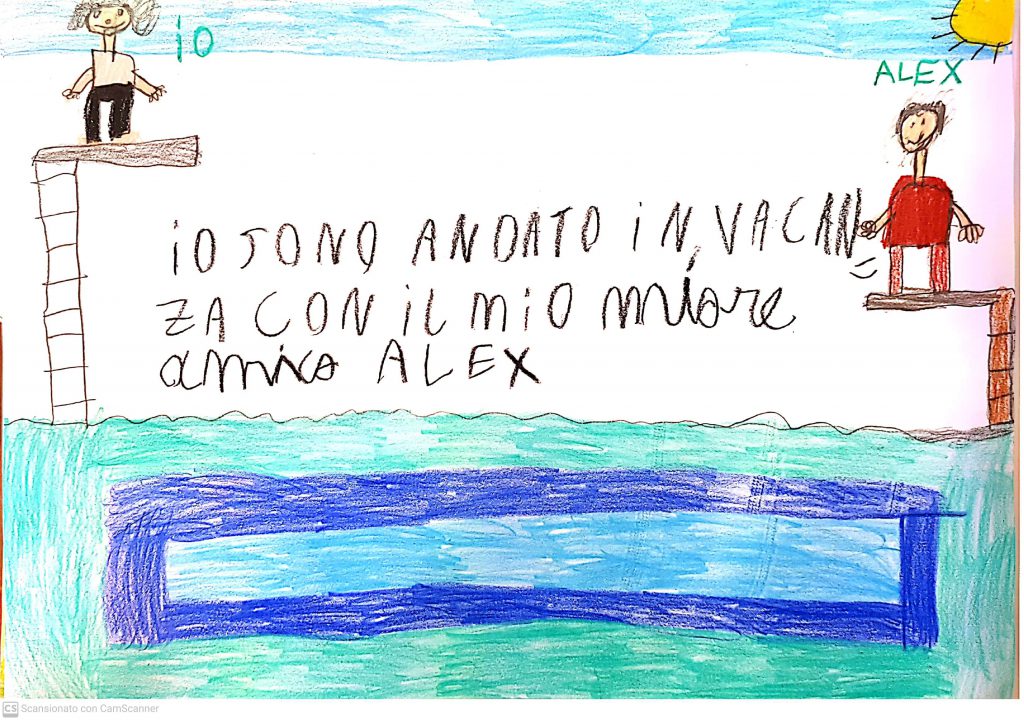 iO
ALEX
iO SONO ANDATO iN VACAN
ZA CON iL MiO miore
amico ALEX
CS Scansionato con CamScanner